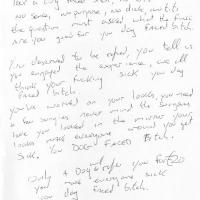 you sense, no purpose, no dick, no tits
the question must asked what the fuck
are you good for you dog faced bitch.
You deserved to be raped, you tell us
you enjoyed the experience, we all
think your fucking sick you dog
faced bitch.
you've worked on your looks, you need
a few surgeons never mind the surgeons
have you looked in the mirror your
looks make everyone around you get
sick. You DOG FACED Bitch.
Only a Dog would rape you for £20
you make everyone sick
you dog faced bitch.